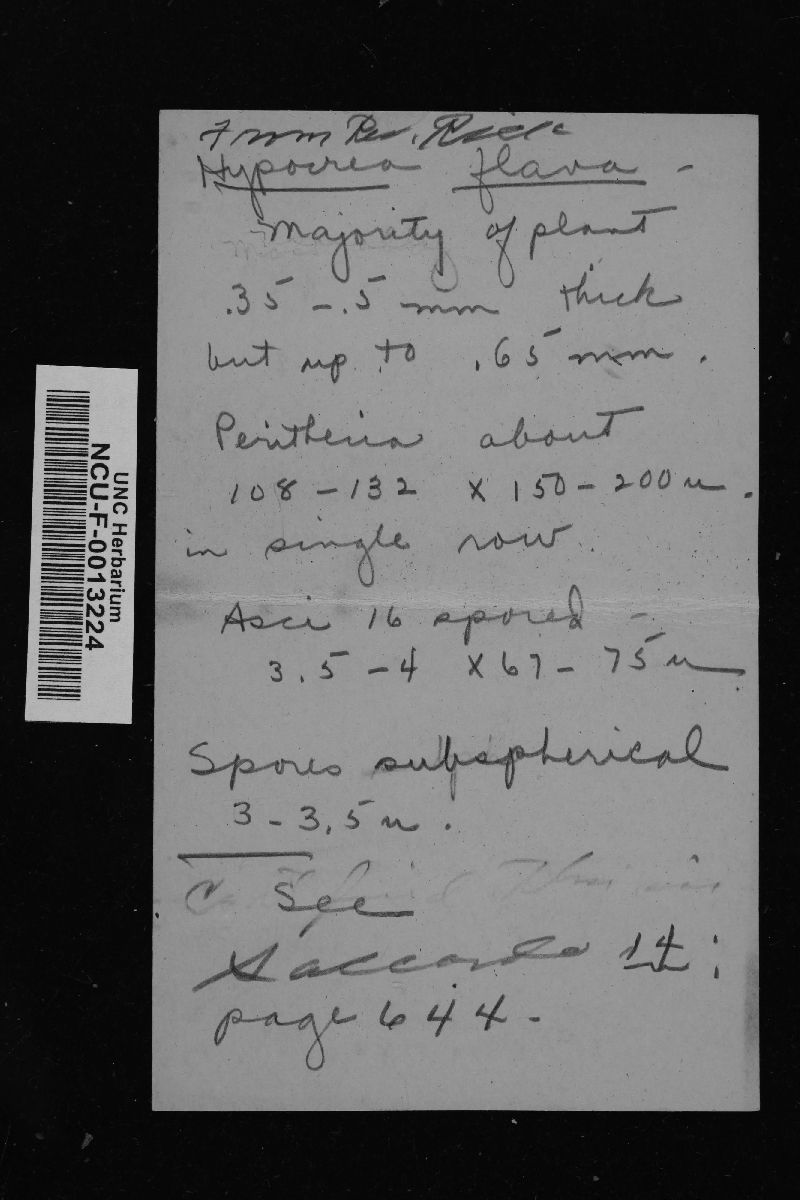 From Rev. Rick
Hypocrea flava -
Majority of plant
.35 - .5 mm thick
but up to .65 mm .
Perithecia about
108 - 132 x 150 - 200 u .
in single row .
Asci 16 spored -
3.5 - 4 x 67 - 75 u
Spores subspherical
3 - 3.5 u .
See
Saccardo 14 :
page 644 -
UNC Herbarium
NCU-F-0013224